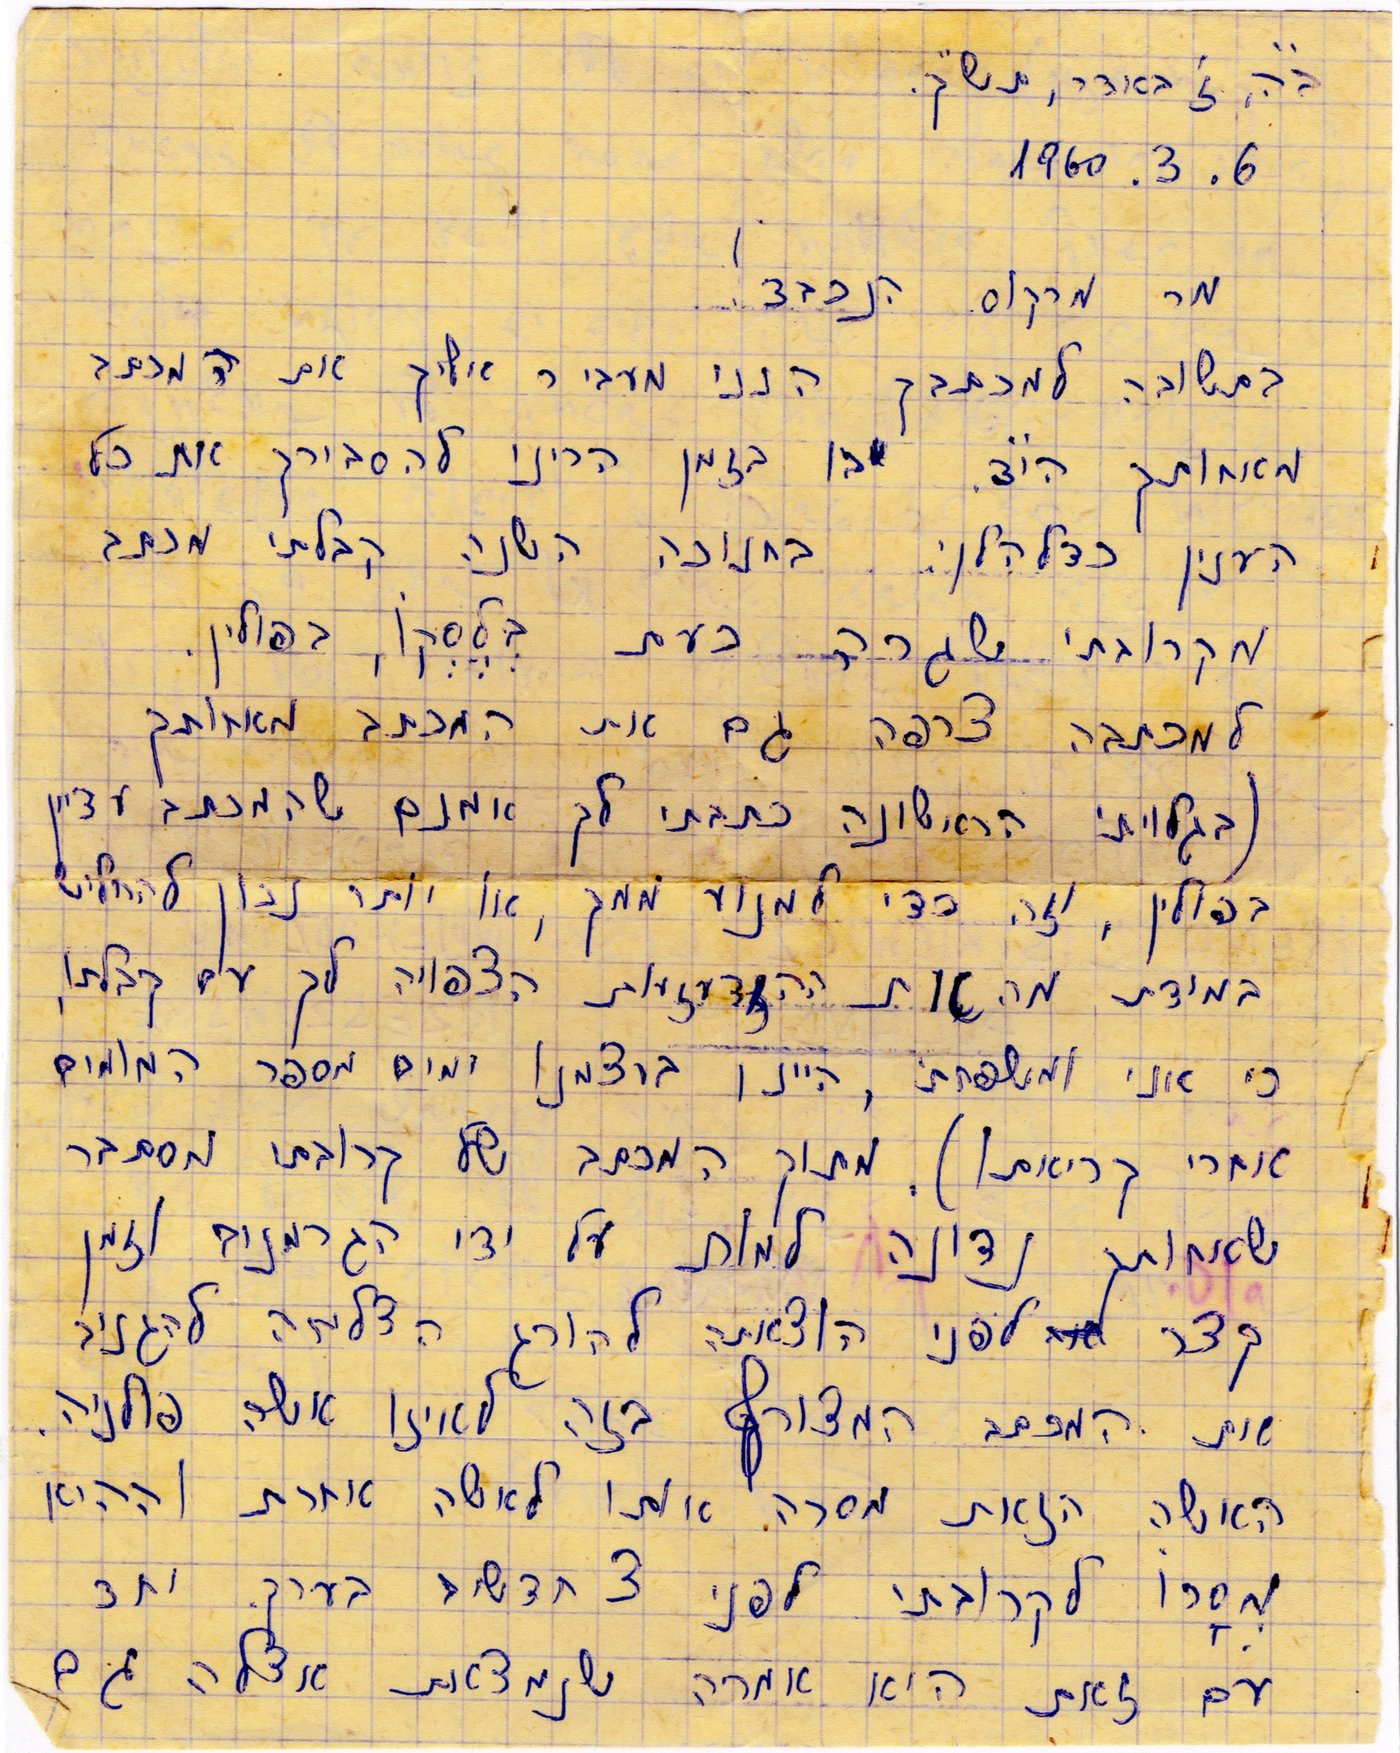 ב"ה, ז' באדר, תש"ך.
6. 3. 1960
מר מרקוס הנכבד!
בתשובה למכתבך הנני מעביר אליך את המכתב
מאחותך הי"ד. בו בזמן הריני להסבירך את כל
הענין כדלהלן: בחנוכה השנה קבלתי מכתב
מקרובתי שגרה כעת בִּלֶסְקוֹ, בפולין.
למכתבה צרפה גם את המכתב מאחותך
(בגלויתי הראשונה כתבתי לך אמנם שהמכתב עדיין
בפולין, וזה כדי למנוע ממך, או יותר נכון להחליש
במידת מה את ההזדעזעות הצפויה לך עם קבלתו,
כי אני ומשפחתי, היינו בעצמנו ימים מספר המומים
אחרי קריאתו). מתוך המכתב של קרובתי מסתבר
שאחותך נדונה למות על ידי הגרמנים וזמן
קצר לפני הוצאתה להורג הצליחה להגניב
את המכתב המצורף בזה לאיזו אשה פולניה.
האשה הזאת מסרה אותו לאשה אחרת וההיא
מְסָרוֹ לקרובתי לפני 3 חדשים בערך. יחד
עם זאת היא אמרה שנמצאת אצלה גם